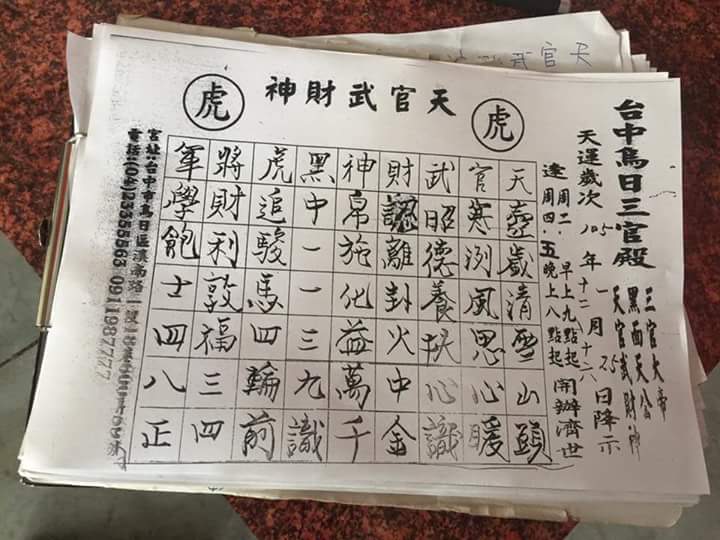 天官武財神
虎
虎
台中烏日三官殿
三官大帝
黑面天公
天官武財神
天運歲次105年十二月十六日降示
一 25
逢周二.早上九點起
周四.五晚上八點起
開辦濟世
天歲清雪山頭
官寒冽風思心暖
武昭德養心識
財認離卦火中金
神帛施化益萬千
黑中一一三九識
虎追駿馬四輪前
將財利敦福三四
軍學飽士四八正
宮址:台中市烏日區溪南路一
電話:(04)23355563 0911987777
武官天